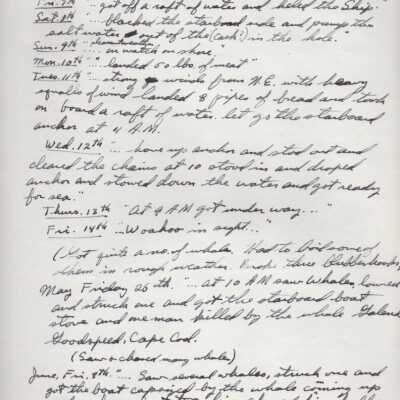 Fri. 7th "got off a raft of water and heeled the Ship"
Sat. 8th "...blacked the starboard side and pumped the
salt water out of the (cask?) in the hole."
Sun. 9th "... on watch on shore"
Mon. 10th "landed 50 lbs of meat"
Tues. 11th "strong winds from N.E. with heavy
squalls of wind landed 8 pipes of bread and took
on board a raft of water. let go the starboard
anchor at 4 A.M.
Wed. 12th "... hove up anchor and stood out and
cleared the chains at 10 stood in and droped
anchor and stowed down the water and got ready
for sea."
Thurs. 13th "At 9 AM got under way..."
Fri. 14th "...Woahoo in sight..."
(Got quite a no. of whales. Had to boil some of
them in rough weather. Broke three blubber hooks)
May Friday 26th "... at 10 AM saw Whales, lowered
and struck one and got the starboard boat
stove and one man killed by the whale
Goodspeed, Cape Cod.
(Saw & chased many whales)
June, Fri. 9th "... Saw several whales, struck one and
got the boat capsized by the whale coming up